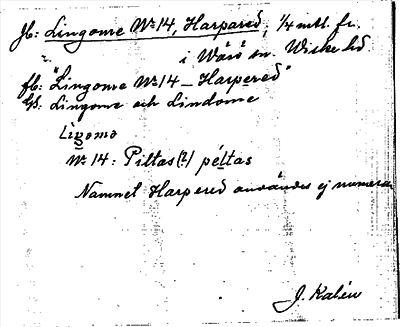 Jb: Lingome No 14, Harpared, 1/4 mtl. fr.
i Wärö sn. Wiske hd
fb: "Lingome No 14 – Harpered"
Lingome och Lindome
Ligomo
No 14: Piltas (?) péltas
Namnet Harpered användes ej numera
J. Kalén